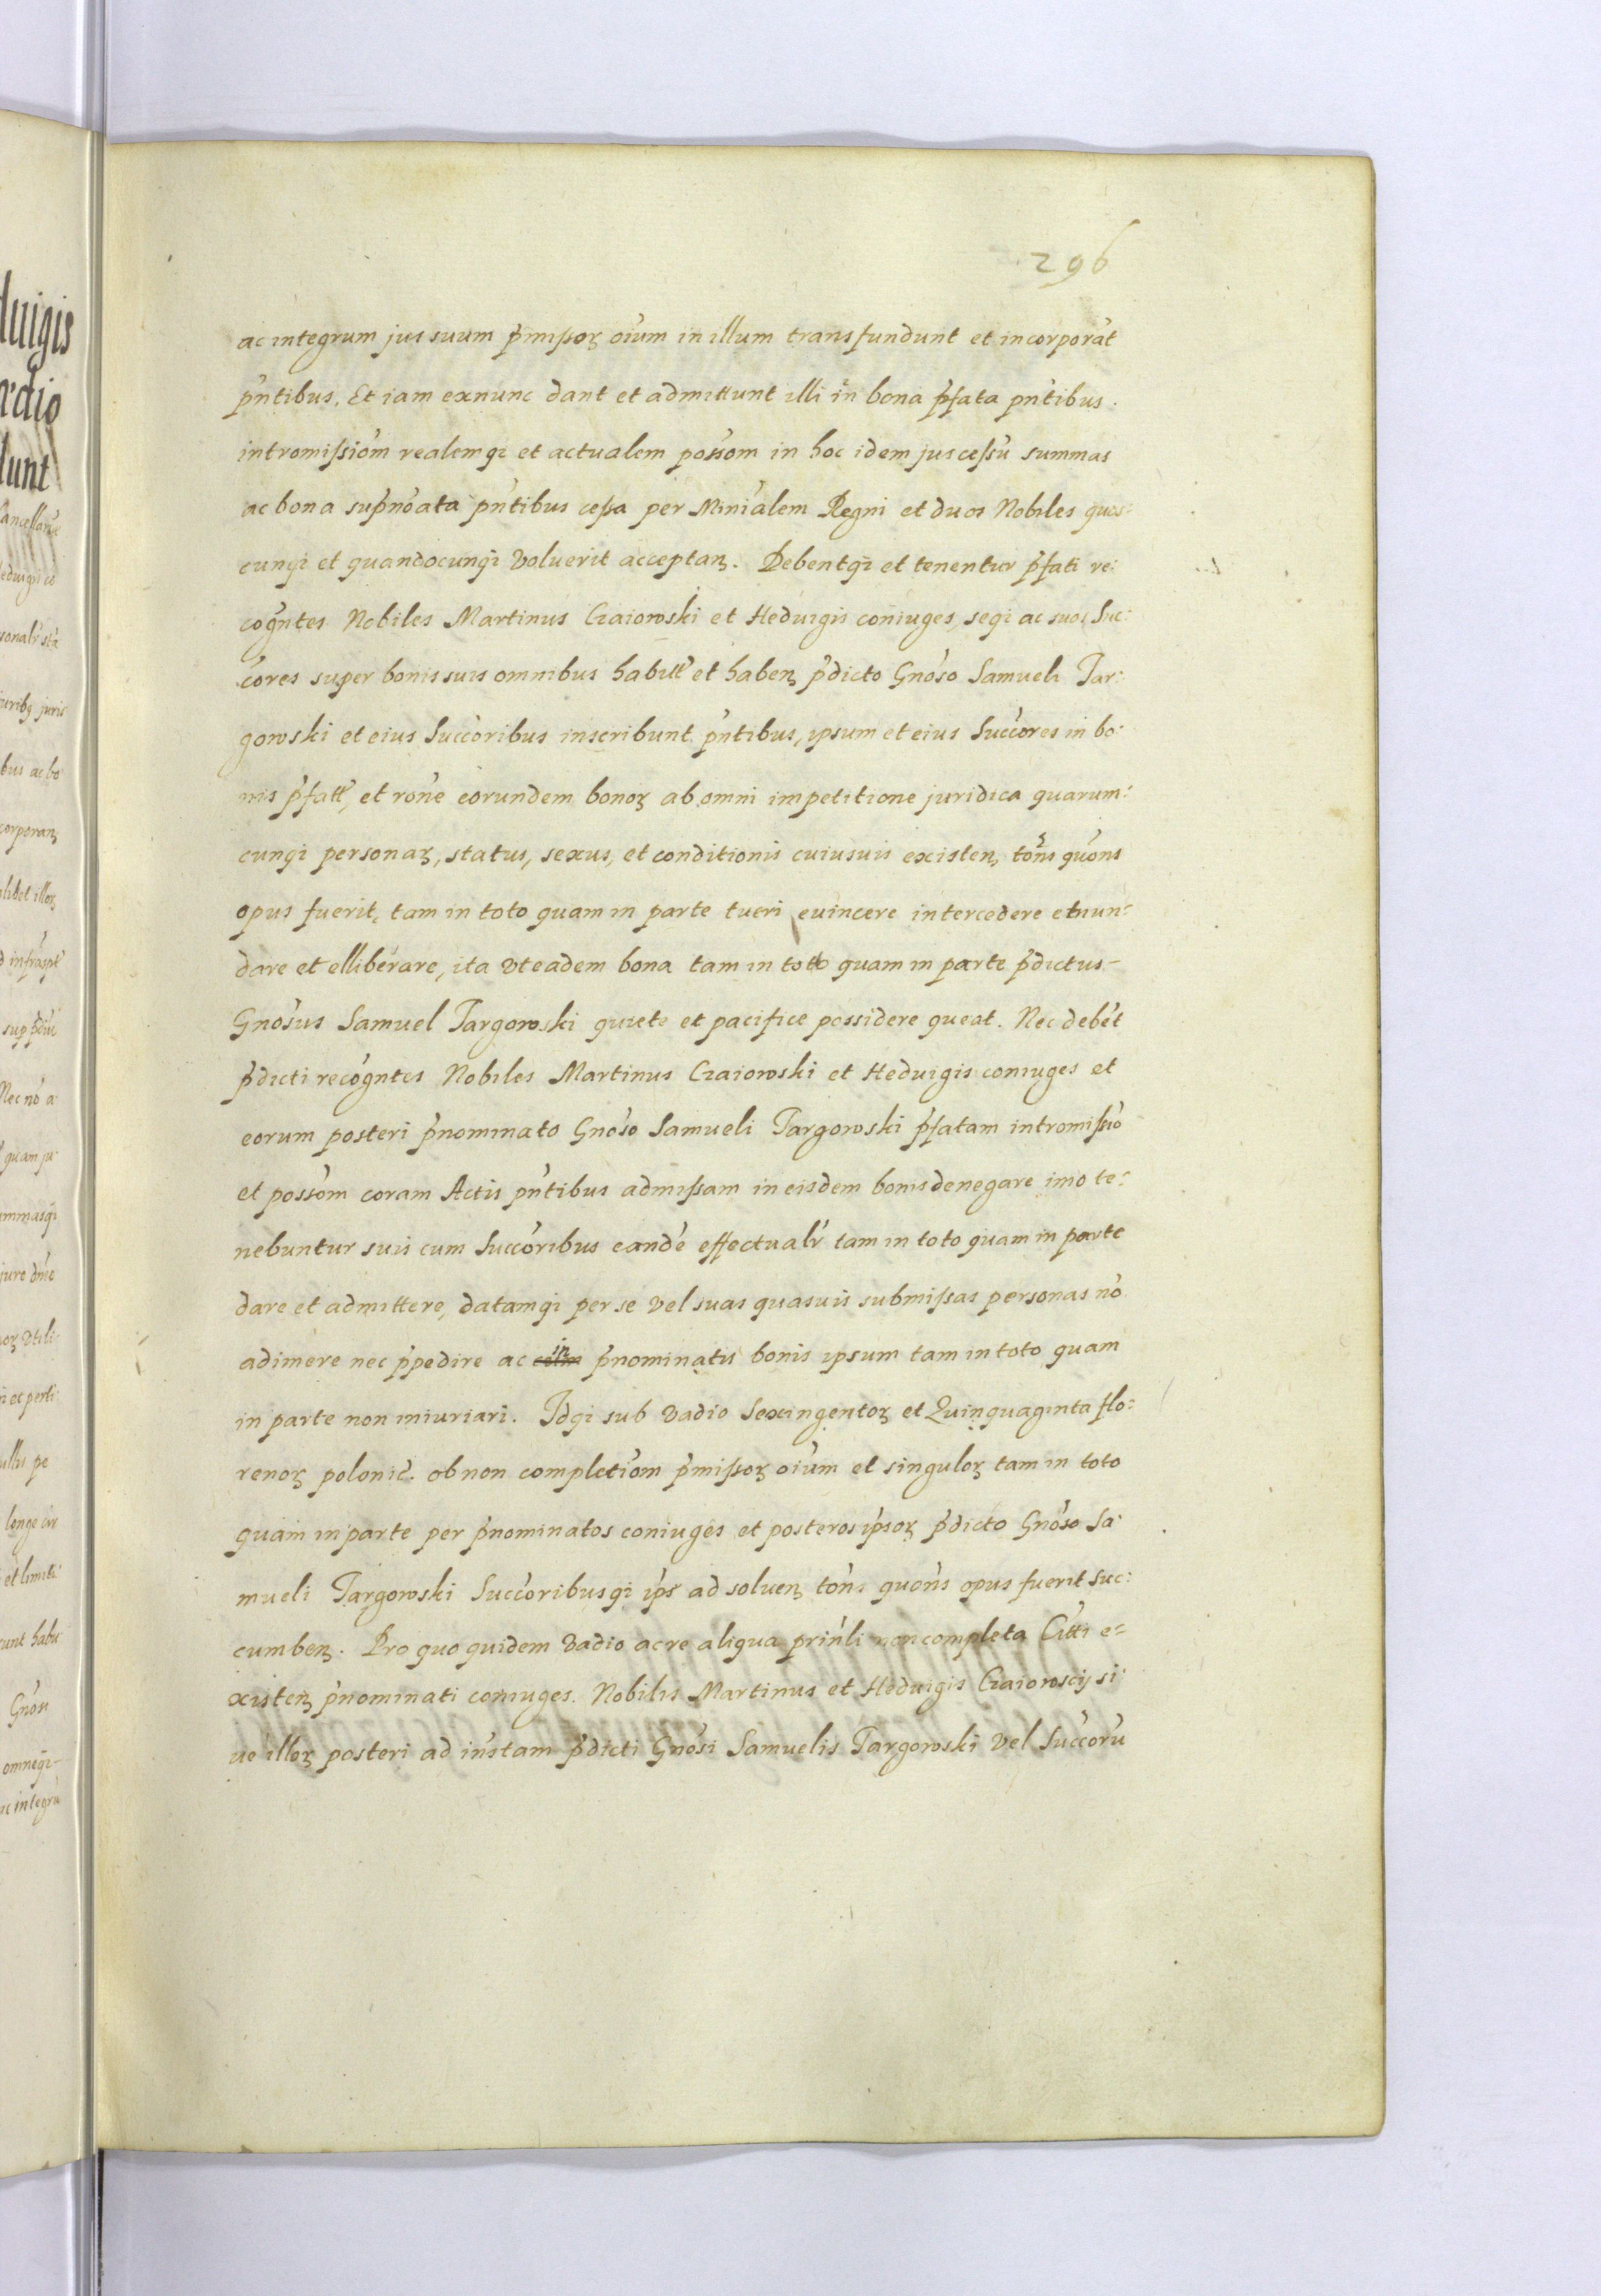 296
ac integrum jus suum p̃missoꝝ oi͂um in illum transfundunt et incorporãt
p̃ntibus. Et iam exnunc dant et admittunt illi in bona p̃fata p̃ntibus.
intromissio͂m realemqȝ et actualem posso͂m in hoc idem jus cessũ summas
ac bona sup̃no͂ata p̃ntibus cessa per Mini͂alem Regni et duos Nobiles quos=
cunqȝ et quandocunqȝ voluerit acceptanꝝ. Debentqȝ et tenentur p̃fati re:
cogñtes Nobiles Martinus Czaiowski et Heduigis coniuges, seqȝ ac suos Suc:
co͂res super bonis suis omnibus habitt͂ et habenꝝ p̃dicto Gno͂so Samueli Tar:
gowski et eius Succo͂ribus inscribunt p̃ntibus, ipsum et eius Succo͂res in bo:
nis p̃fatt͂, et ro͂ne eorundem bonoꝝ ab omni impetitione juridica quarum:
cunqȝ personaꝝ, status, sexus, et conditionis cuiusuis existenꝝ to͂ns quo͂ns
opus fuerit, tam in toto quam in parte tueri euincere intercedere etnun:
dare et elliberare, ita vt eadem bona tam in toto quam in parte p̃dictus
Gno͂sus Samuel Targowski quiete et pacifice possidere queat. Nec debe͂t
p̃dicti recogñtes Nobiles Martinus Czaiowski et Heduigis coniuges et
eorum posteri p̃nominato Gno͂so Samueli Targowski p̃fatam intromissio͂
et posso͂m coram Actis p̃ntibus admissam in eisdem bonis denegare imo te:
nebuntur suis cum Succo͂ribus eandẽ effectualr̃ tam in toto quam in parte
dare et admittere, datamqȝ per se vel suas quasuis submissas personas no͂
adimere nec p̃pedire ac in p̃nominatis bonis ipsum tam in toto quam
in parte non iniuriari. Idqȝ sub vadio Sexingentoꝝ et Quinquaginta flo:
renoꝝ polonic̃. ob non completio͂m p̃missoꝝ oi͂um et singuloꝝ tam in toto
quam in parte per p̃nominatos coniuges et posteros ipsoꝝ p̃dicto Gno͂so Sa:
mueli Targowski Succo͂ribusqȝ ips͂ ad soluenꝝ to͂ns quo͂ns opus fuerit suc:
cumbenꝝ. Pro quo quidem vadio ac re aliqua prin͂li non completa Citti e=
xistenꝝ p̃nominati coniuges. Nobilis Martinus et Heduigis Czaiowscy si:
ue illoꝝ posteri ad insta͂m p̃dicti Gno͂si Samuelis Targowski vel Succo͂rũ